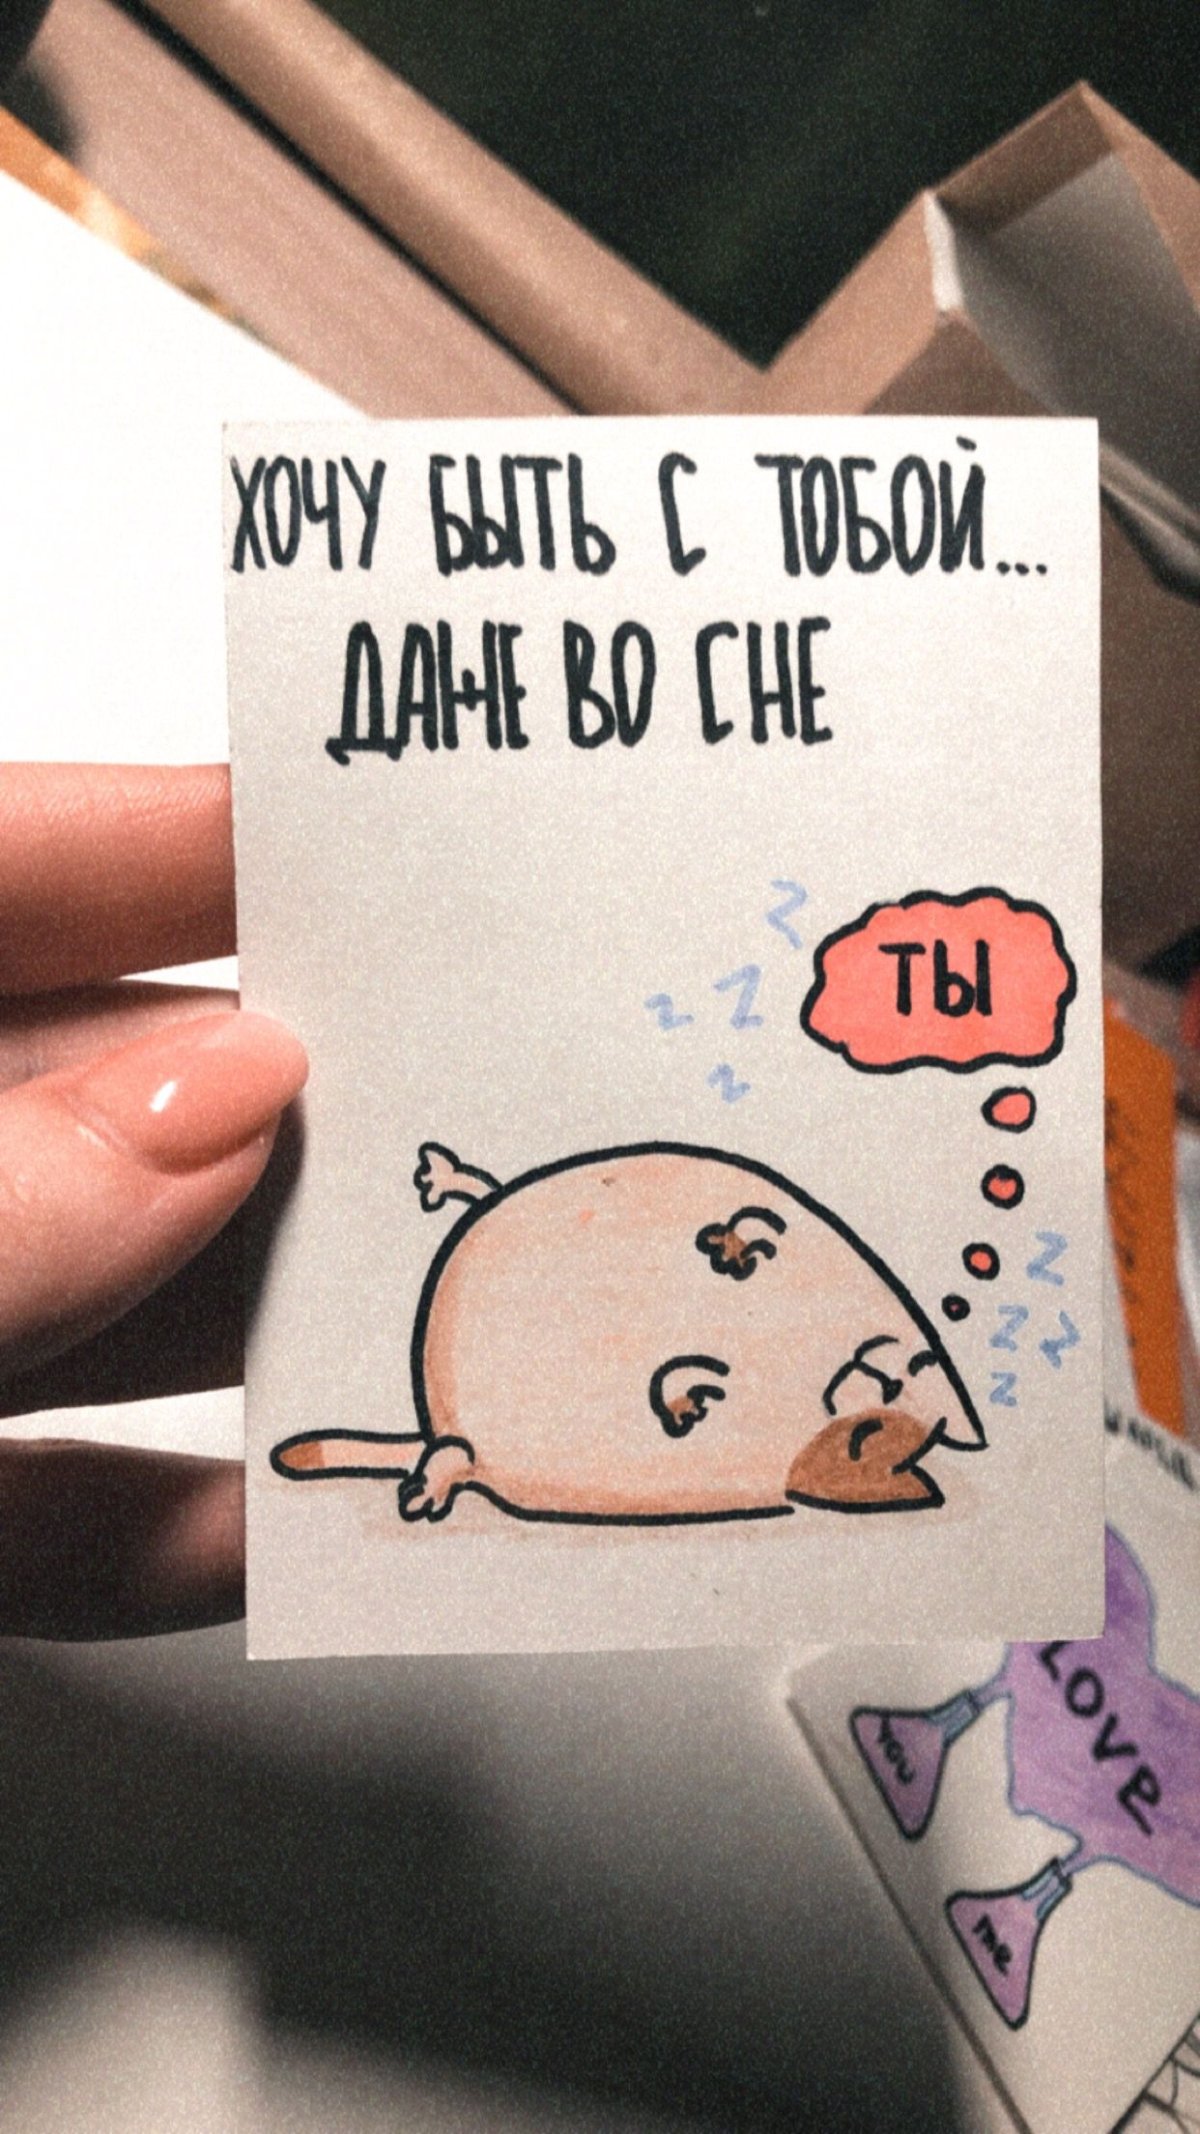 ХОЧУ БЫТЬ С ТОБОЙ...
ДАЖЕ ВО СНЕ
z
z z
z
ТЫ
z
z z
z
LOVE
YOU
me